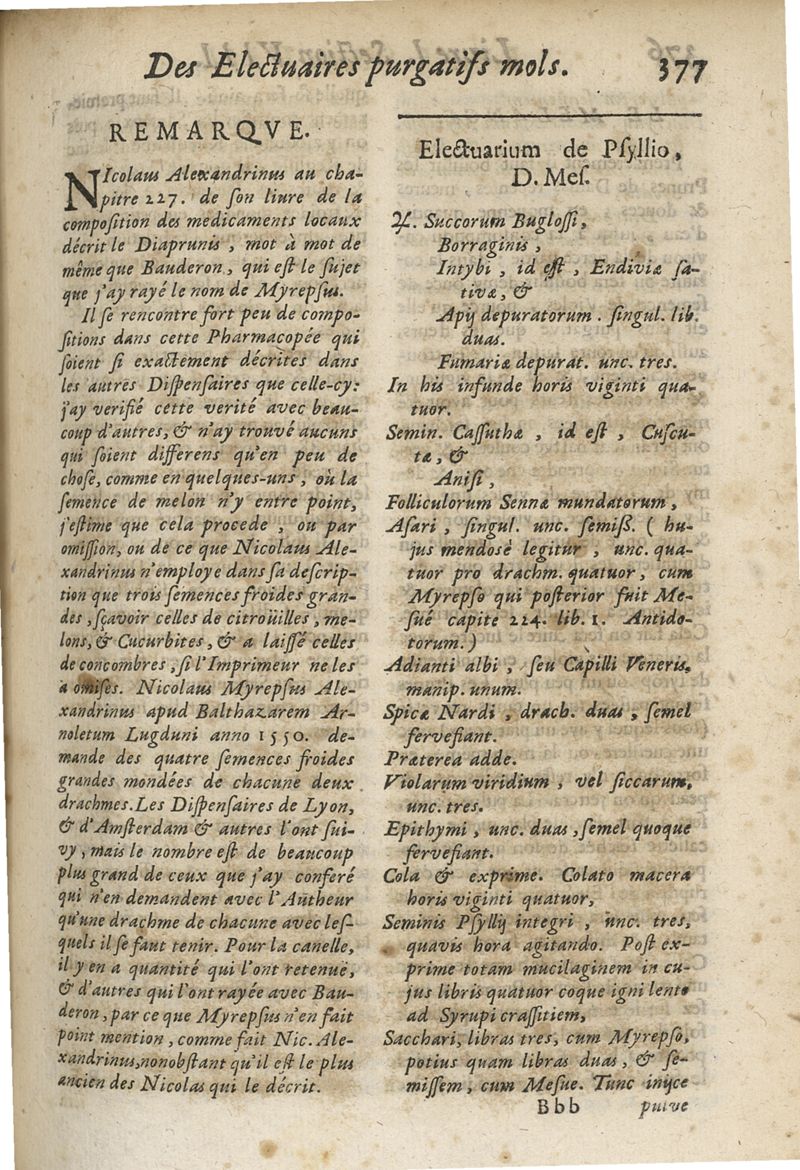 Des Electuaires purgatifs mols. 377
REMARQVE.
NIcolaus Alexandrinus au cha-
pitre 227. de ſon liure de la
compoſition des medicaments locaux
décrit le Diaprunis, mot à mot de
même que Bauderon, qui eſt le ſujet
que j'ay rayé le nom de Myrepſus.
Il ſe rencontre fort peu de compo-
ſitions dans cette Pharmacopée qui
ſoient ſi exactement décrites dans
les autres Diſpenſaires que celle-cy:
j'ay verifié cette verité avec beau-
coup d'autres, & n'ay trouvé aucuns
qui ſoient differens qu'en peu de
choſe, comme en quelques-uns, où la
ſemence de melon n'y entre point,
j'eſtime que cela procede, ou par
omiſſion, ou de ce que Nicolaus Ale-
xandrinus n'employe dans ſa deſcrip-
tion que trois ſemences froides gran-
des, ſçavoir celles de citroüilles, me-
lons, & Cucurbites, & a laiſſé celles
de concombres, ſi l'Imprimeur ne les
a omiſes. Nicolaus Myrepſus Ale-
xandrinus apud Balthazarem Ar-
noletum Lugduni anno 1550. de-
mande des quatre ſemences froides
grandes mondées de chacune deux
drachmes. Les Diſpenſaires de Lyon,
& d'Amſterdam & autres l'ont ſui-
vy, mais le nombre eſt de beaucoup
plus grand de ceux que j'ay conferé
qui n'en demandent avec l'Autheur
qu'une drachme de chacune avec leſ-
quels il ſe faut tenir. Pour la canelle,
il y en a quantité qui l'ont retenuë,
& d'autres qui l'ont rayée avec Bau-
deron, par ce que Myrepſus n'en fait
point mention, comme fait Nic. Ale-
xandrinus, nonobſtant qu'il eſt le plus
ancien des Nicolas qui le décrit.
Electuarium de Pſyllio,
D. Meſ.
♃. Succorum Bugloſſi,
Borraginis,
Intybi, id eſt, Endiviæ ſa-
tivæ, &
Apij depuratorum. ſingul. lib.
duas.
Fumariæ depurat. unc. tres.
In his infunde horis viginti qua-
tuor.
Semin. Caſſuthæ, id eſt, Cuſcu-
tæ, &
Aniſi,
Folliculorum Sennæ mundatorum,
Aſari, ſingul. unc. ſemiß. (hu-
jus mendosè legitur, unc. qua-
tuor pro drachm. quatuor, cum
Myrepſo qui poſterior fuit Me-
ſué capite 224. lib. 1. Antido-
torum.)
Adianti albi, ſeu Capilli Veneris,
manip. unum.
Spicæ Nardi, drach. duas, ſemel
fervefiant.
Præterea adde.
Violarum viridium, vel ſiccarum,
unc. tres.
Epithymi, unc. duas, ſemel quoque
fervefiant.
Cola & exprime. Colato macera
horis viginti quatuor,
Seminis Pſyllij integri, unc. tres,
quavis hora agitando. Poſt ex-
prime totam mucilaginem in cu-
jus libris quatuor coque igni lento
ad Syrupi craſſitiem,
Sacchari, libras tres, cum Myrepſo,
potius quam libras duas, & ſe-
miſſem, cum Meſue. Tunc inijce
Bbb pulve